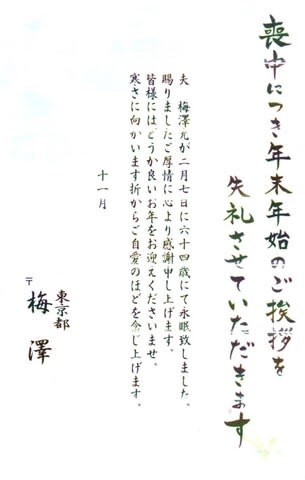 喪中につき年末年始のご挨拶を
失礼させていただきます
夫　梅澤允が二月七日に六十四歳にて永眠致しました。
賜りましたご厚情に心より感謝申し上げます。
皆様にはどうか良いお年をお迎えくださいませ。
寒さに向かいます折からご自愛のほどを念じ上げます。
十一月
〒
東京都
梅澤